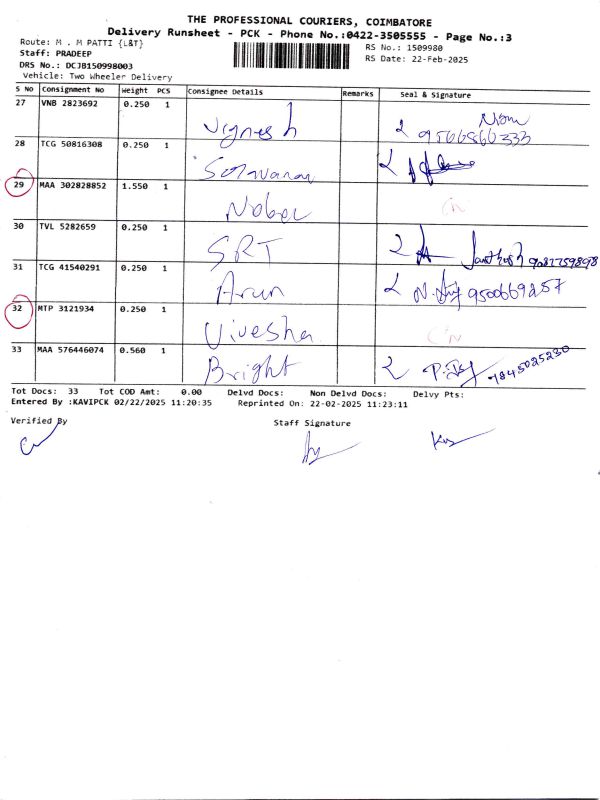 THE PROFESSIONAL COURIERS, COIMBATORE
Delivery Runsheet - PCK - Phone No.:0422-3505555 - Page No.:3
Route: M . M PATTI {L&T}
RS No.: 1509980
Staff: PRADEEP
RS Date: 22-Feb-2025
DRS No.: DCJB150998003
Vehicle: Two Wheeler Delivery
S No Consignment No Weight PCS Consignee Details Remarks Seal & Signature
27 VNB 2823692 0.250 1 Vignesh 9566866333
28 TCG 50816308 0.250 1
29 MAA 302828852 1.550 1
30 TVL 5282659 0.250 1 SRT Santhosh
31 TCG 41540291 0.250 1 Arun 9500669257
32 MTP 3121934 0.250 1 Vivesha
33 MAA 576446074 0.560 1 Bright 9845025230
Tot Docs: 33 Tot COD Amt: 0.00 Delvd Docs: Non Delvd Docs: Delvy Pts:
Entered By :KAVIPCK 02/22/2025 11:20:35 Reprinted On: 22-02-2025 11:23:11
Verified By Staff Signature